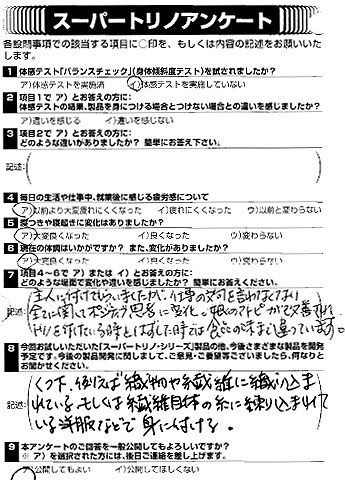 スーパートリノアンケート
各設問事項での該当する項目に○印を、もしくは内容の記述をお願いいた
します。
1 体感テスト「バランスチェック」(身体傾斜度テスト)を試されましたか?
ア)体感テストを実施済 イ)体感テストを実施していない
2 項目1で ア)とお答えの方に:
体感テストの結果、製品を身につける場合とつけない場合との違いを感じましたか?
ア)違いを感じる イ)違いを感じない
3 項目2で ア)とお答えの方に:
どのような違いがありましたか? 簡単にお答え下さい。
記述:
4 毎日の生活や仕事中、就業後に感じる疲労感について
ア)以前より大変疲れにくくなった イ)疲れにくくなった ウ)以前と変わらない
5 寝つきや寝起きに変化はありましたか?
ア)大変良くなった イ)良くなった ウ)変わらない
6 現在の体調はいかがですか? また、変化がありましたか?
ア)大変良くなった イ)良くなった ウ)変わらない
7 項目4〜6で ア)または イ)とお答えの方に:
どのような場面で変化や違いを感じましたか? 簡単にお答えください。
主人に付けてもらいましたが、仕事の文句を言わなくなり
記述:
8 今回お試しいただいた「スーパートリノ・シリーズ」製品の他、今後さまざまな製品を開発
予定です。今後の製品開発に関しまして、ご意見・ご要望等ございましたら、何なりと
お聞かせください。
くつ下、例えば織物や繊維に織り込ま
記述: れている。もしくは繊維自体の糸に練り込まれて
いる洋服などで身に付ける。
9 本アンケートのご回答を一般公開してもよろしいですか?
※ ア)を選択された方には、後日ご連絡を差し上げます。
ア)公開してもよい イ)公開してほしくない